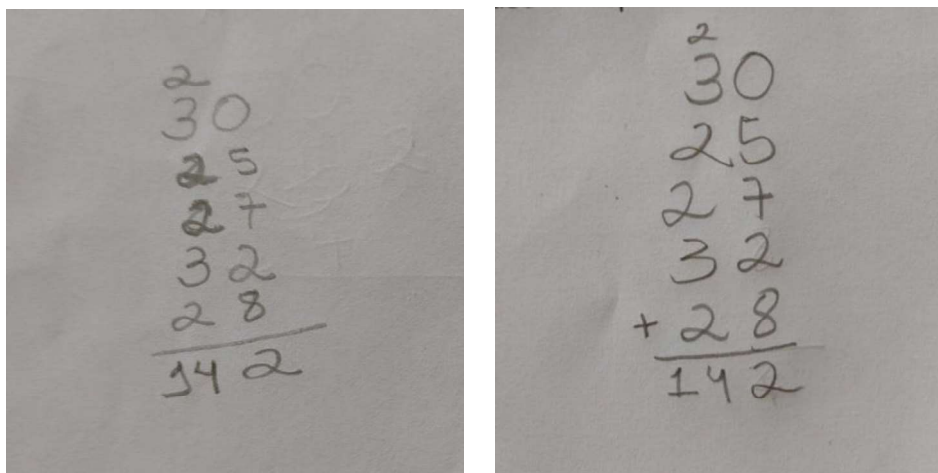 2
30
25
27
32
28
142
2
30
25
27
32
+ 28
142